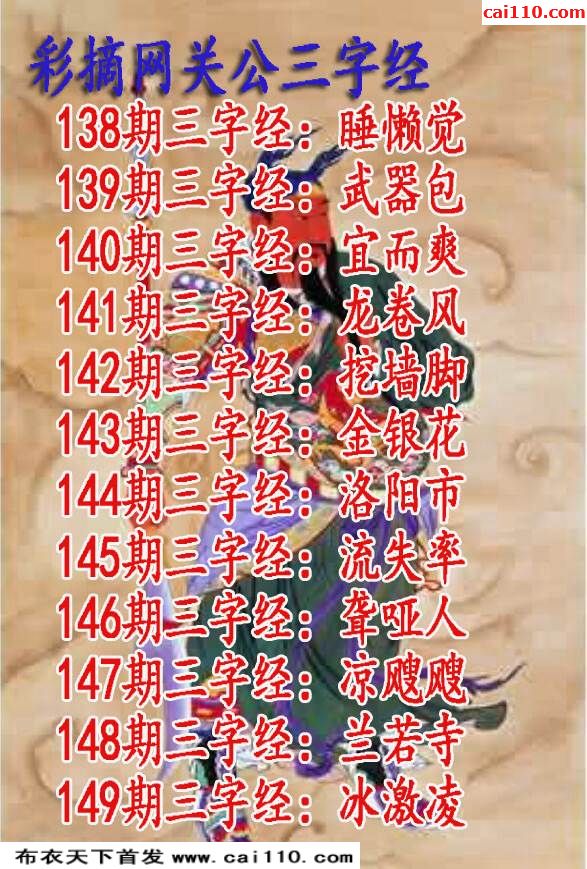 cai110.com
彩摘网关公三字经
138期三字经：睡懒觉
139期三字经：武器包
140期三字经：宜而爽
141期三字经：龙卷风
142期三字经：挖墙脚
143期三字经：金银花
144期三字经：洛阳市
145期三字经：流失率
146期三字经：聋哑人
147期三字经：凉飕飕
148期三字经：兰若寺
149期三字经：冰激凌
布衣天下首发 www.cai110.com